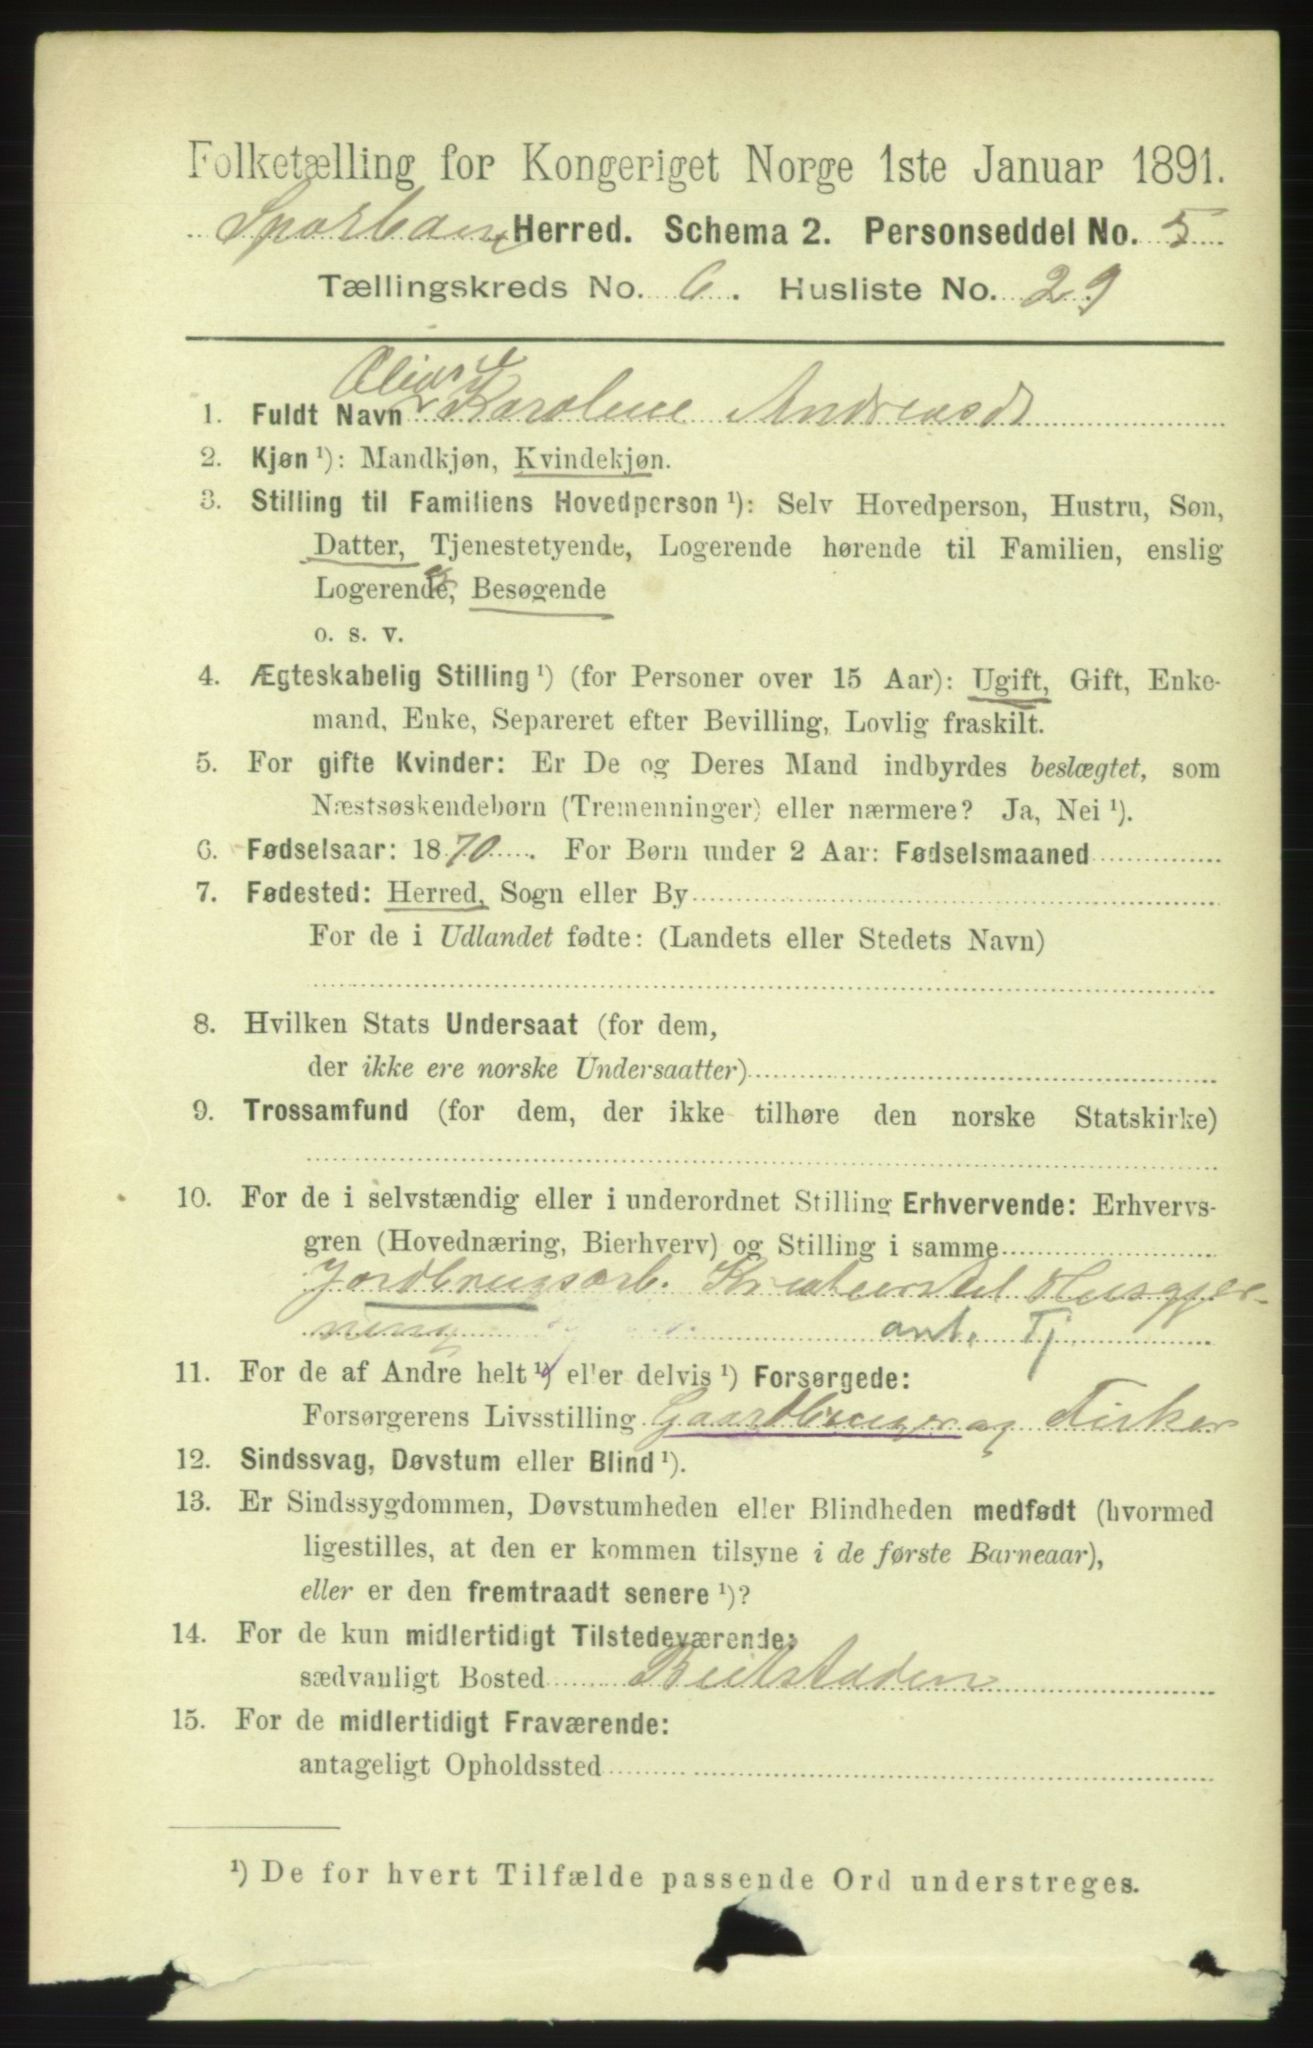 Folketælling for Kongeriget Norge 1ste Januar 1891.
Sparbuen Herred. Schema 2. Personseddel No. 5
Tællingskreds No. 6. Husliste No. 29
1. Fuldt Navn Karoline Andreasdt
2. Kjøn ¹): Mandkjøn, Kvindekjøn.
3. Stilling til Familiens Hovedperson ¹): Selv Hovedperson, Hustru, Søn,
Datter, Tjenestetyende, Logerende hørende til Familien, enslig
Logerende, og Besøgende
o. s. v.
4. Ægteskabelig Stilling ¹) (for Personer over 15 Aar): Ugift, Gift, Enke-
mand, Enke, Separeret efter Bevilling, Lovlig fraskilt.
5. For gifte Kvinder: Er De og Deres Mand indbyrdes beslægtet, som
Næstsøskendebørn (Tremenninger) eller nærmere? Ja, Nei ¹).
6. Fødselsaar: 1870. For Børn under 2 Aar: Fødselsmaaned
7. Fødested: Herred, Sogn eller By
For de i Udlandet fødte: (Landets eller Stedets Navn)
8. Hvilken Stats Undersaat (for dem,
der ikke ere norske Undersaatter)
9. Trossamfund (for dem, der ikke tilhøre den norske Statskirke)
10. For de i selvstændig eller i underordnet Stilling Erhvervende: Erhvervs-
gren (Hovednæring, Bierhverv) og Stilling i samme
Jordbrugsarb. Kreaturstel Husgjer-
ning ant. Tj.
11. For de af Andre helt ¹) eller delvis ¹) Forsørgede:
Forsørgerens Livsstilling Gaardbruger og Fisker
12. Sindssvag, Døvstum eller Blind ¹).
13. Er Sindssygdommen, Døvstumheden eller Blindheden medfødt (hvormed
ligestilles, at den er kommen tilsyne i de første Barneaar),
eller er den fremtraadt senere ¹)?
14. For de kun midlertidigt Tilstedeværende:
sædvanligt Bosted Beitstaden
15. For de midlertidigt Fraværende:
antageligt Opholdssted
¹) De for hvert Tilfælde passende Ord understreges.